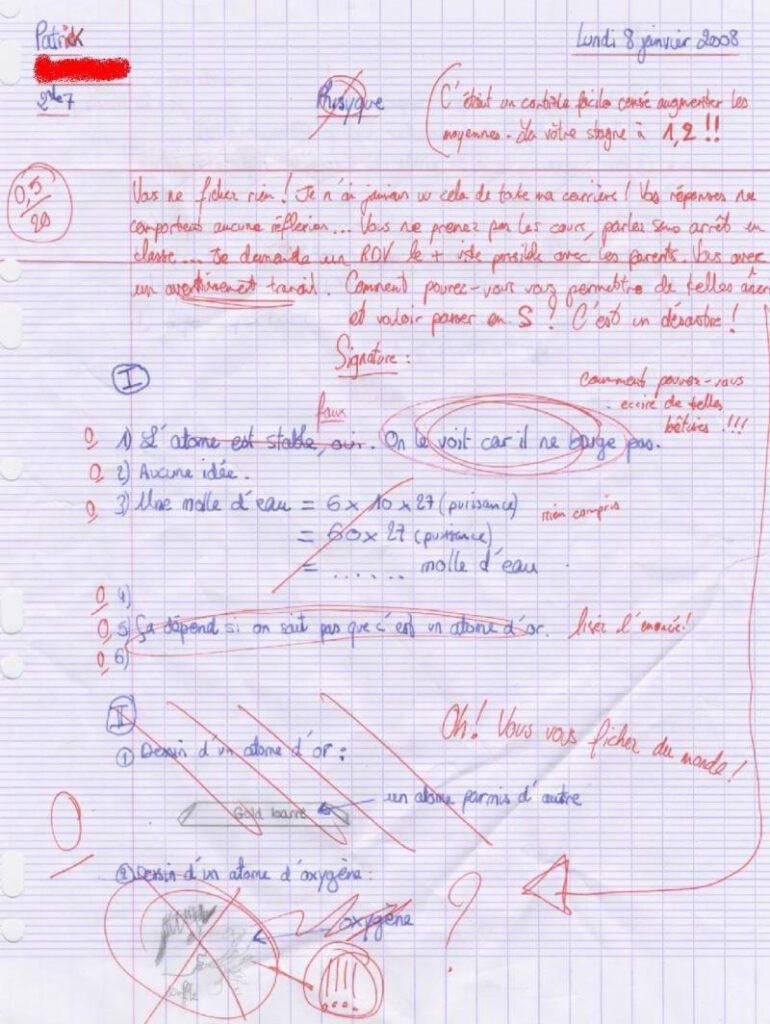 Patrick
Lundi 8 janvier 2008
2nde7
Phisyque
C'était un contrôle facile censé augmenter les
moyennes. La vôtre stagne à 1,2 !!
0,5/20
Vous ne ficher rien ! Je n'ai jamais vu cela de toute ma carrière ! Vos réponses ne
comportent aucune réflexion... Vous ne prenez pas les cours, parlez sans arrêt en
classe... Je demande un RDV le + vite possible avec les parents. Vous avec
un avertissement travail. Comment pouvez-vous vous permettre de telles
et vouloir passer en S ? C'est un désastre !
Signature :
I
comment pouvez-vous
écrire de telles
bêtises !!!
faux
0 1) L'atome est stable, oui. On le voit car il ne bouge pas.
0 2) Aucune idée.
0 3) Une molle d'eau = 6 x 10 x 27 (puissance)
rien compris
= 60 x 27 (puissance)
= ...... molle d'eau
0 4)
0 5) Ça dépend si on sait pas que c'est un atome d'or. liser l'énoncé!
0 6)
II
Oh! Vous vous ficher du monde!
1 Dessin d'un atome d'or :
un atome parmis d'autre
Gold barre
0
2 Dessin d'un atome d'oxygène :
oxygène
?
!!!!